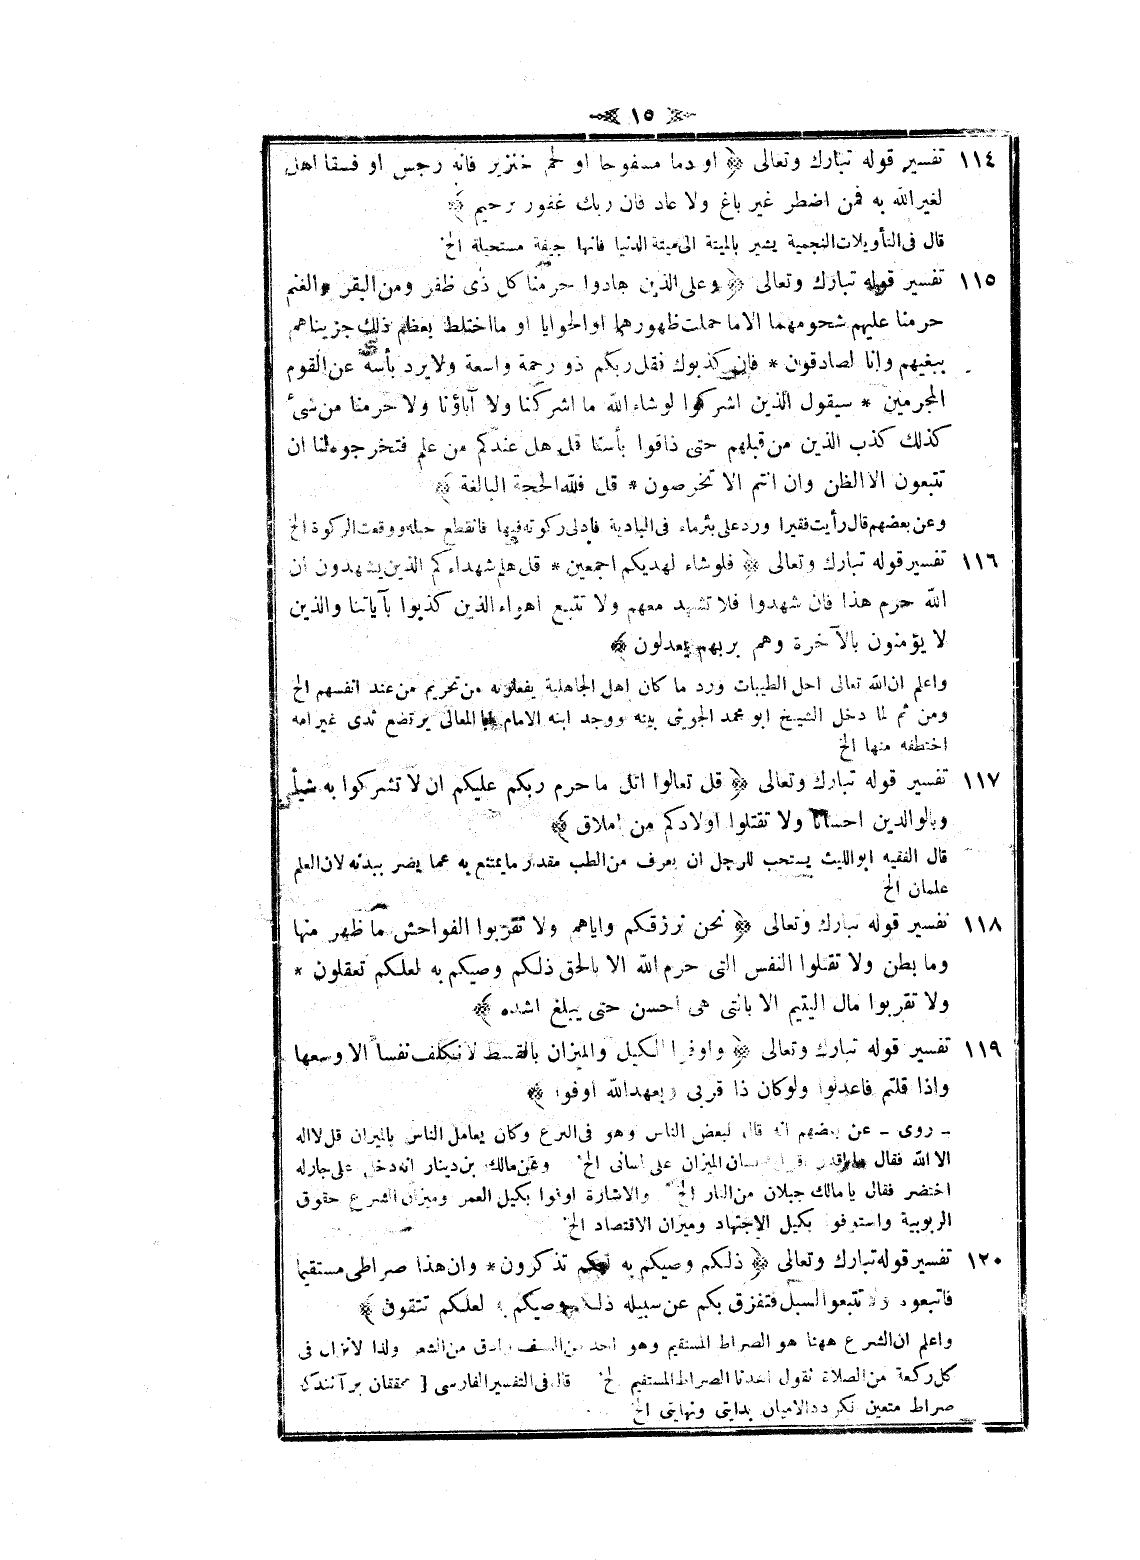 ١٥
١١٤ تفسير قوله تبارك وتعالى ﴿ او دما مسفوحا او لحم خنزير فانه رجس او فسقا اهل
لغير الله به فمن اضطر غير باغ ولا عاد فان ربك غفور رحيم ﴾
قال فى التأويلات النجمية يشير بالميتة الى ميتة الدنيا فانها جيفة مستحيلة الخ
١١٥ تفسير قوله تبارك وتعالى ﴿ وعلى الذين هادوا حرمنا كل ذى ظفر ومن البقر والغنم
حرمنا عليهم شحومهما الا ما حملت ظهورهما او الحوايا او ما اختلط بعظم ذلك جزيناهم
ببغيهم وانا لصادقون * فان كذبوك فقل ربكم ذو رحمة واسعة ولا يرد بأسه عن القوم
المجرمين * سيقول الذين اشركوا لو شاء الله ما اشركنا ولا آباؤنا ولا حرمنا من شئ
كذلك كذب الذين من قبلهم حتى ذاقوا بأسنا قل هل عندكم من علم فتخرجوه لنا ان
تتبعون الا الظن وان انتم الا تخرصون * قل فلله الحجة البالغة ﴾
وعن بعضهم قال رأيت فقيرا ورد على بئر ماء فى البادية فادلى ركوته فيها فانقطع حبله ووقعت الركوة الخ
١١٦ تفسير قوله تبارك وتعالى ﴿ فلو شاء لهديكم اجمعين * قل هلم شهداءكم الذين يشهدون ان
الله حرم هذا فان شهدوا فلا تشهد معهم ولا تتبع اهواء الذين كذبوا بآياتنا والذين
لا يؤمنون بالآخرة وهم بربهم يعدلون ﴾
واعلم ان الله تعالى احل الطيبات ورد ما كان اهل الجاهلية يفعلونه من تحريم من عند انفسهم الخ
ومن ثم لما دخل الشيخ ابو محمد الجوينى بيته ووجد ابنه الامام ابا المعالى يرتضع ثدى غير امه
اختطفه منها الخ
١١٧ تفسير قوله تبارك وتعالى ﴿ قل تعالوا اتل ما حرم ربكم عليكم ان لا تشركوا به شيأ
وبالوالدين احسانا ولا تقتلوا اولادكم من املاق ﴾
قال الفقيه ابو الليث يستحب للرجل ان يعرف من الطب مقدار ما يمتنع به عما يضر ببدنه لان العلم
علمان الخ
١١٨ تفسير قوله تبارك وتعالى ﴿ نحن نرزقكم واياهم ولا تقربوا الفواحش ما ظهر منها
وما بطن ولا تقتلوا النفس التى حرم الله الا بالحق ذلكم وصيكم به لعلكم تعقلون *
ولا تقربوا مال اليتيم الا بالتى هى احسن حتى يبلغ اشده ﴾
١١٩ تفسير قوله تبارك وتعالى ﴿ واوفوا الكيل والميزان بالقسط لا نكلف نفسا الا وسعها
واذا قلتم فاعدلوا ولو كان ذا قربى وبعهد الله اوفوا ﴾
ـ روى ـ عن بعضهم انه قال لبعض الناس وهو فى النزع وكان يعامل الناس بالميزان قل لا اله
الا الله فقال ما اقدر لسان الميزان على لسانى الخ وعن مالك بن دينار انه دخل على جار له
احتضر فقال يا مالك جبلان من النار الخ والاشارة اوفوا بكيل العمر وميزان الشرع حقوق
الربوبية واستوفوا بكيل الاجتهاد وميزان الاقتصاد الخ
١٢٠ تفسير قوله تبارك وتعالى ﴿ ذلكم وصيكم به لعلكم تذكرون * وان هذا صراطى مستقيما
فاتبعوه ولا تتبعوا السبل فتفرق بكم عن سبيله ذلكم وصيكم به لعلكم تتقون ﴾
واعلم ان الشرع ههنا هو الصراط المستقيم وهو احد من السيف وادق من الشعر ولذا لا نزال فى
كل ركعة من الصلاة نقول اهدنا الصراط المستقيم الخ قال فى التفسير الفارسى [ محققان بر آنندكه
صراط متعين نكردد الاميان بدايتى ونهايتى الخ